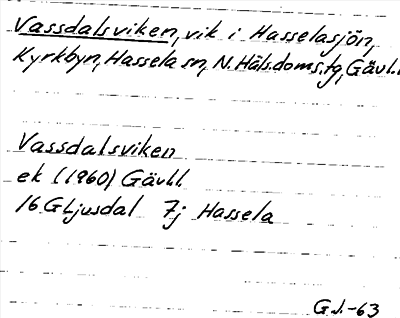 Vassdalsviken, vik i Hasselasjön,
Kyrkbyn, Hassela sn, N. Häls. doms. tg, Gävl.l.
Vassdalsviken
ek (1960) Gävl.l.
16 G Ljusdal 7j Hassela
G.J.-63